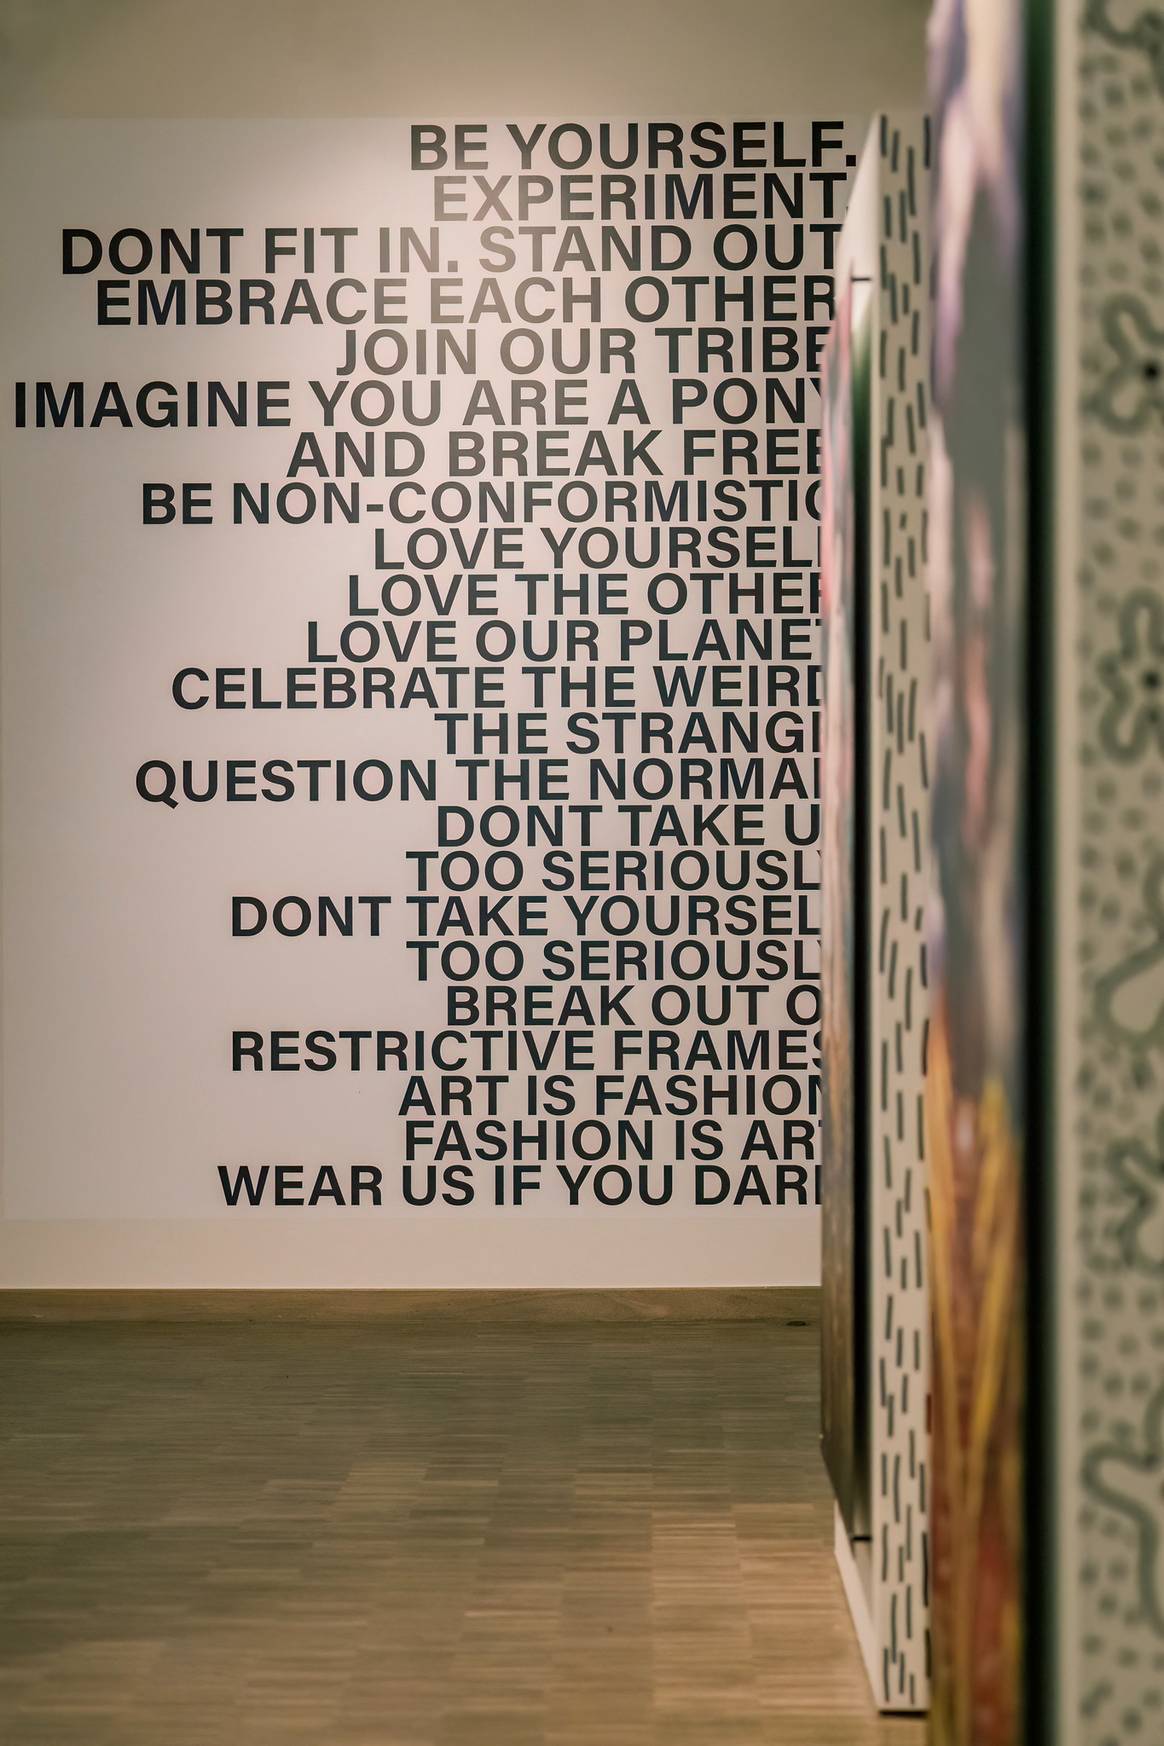 BE YOURSELF.
EXPERIMENT.
DONT FIT IN. STAND OUT
EMBRACE EACH OTHER
JOIN OUR TRIBE
IMAGINE YOU ARE A PONY
AND BREAK FREE
BE NON-CONFORMISTIC
LOVE YOURSELF
LOVE THE OTHER
LOVE OUR PLANET
CELEBRATE THE WEIRD
THE STRANGE
QUESTION THE NORMAL
DONT TAKE U
TOO SERIOUSLY
DONT TAKE YOURSEL
TOO SERIOUSLY
BREAK OUT O
RESTRICTIVE FRAMES
ART IS FASHION
FASHION IS ART
WEAR US IF YOU DARE